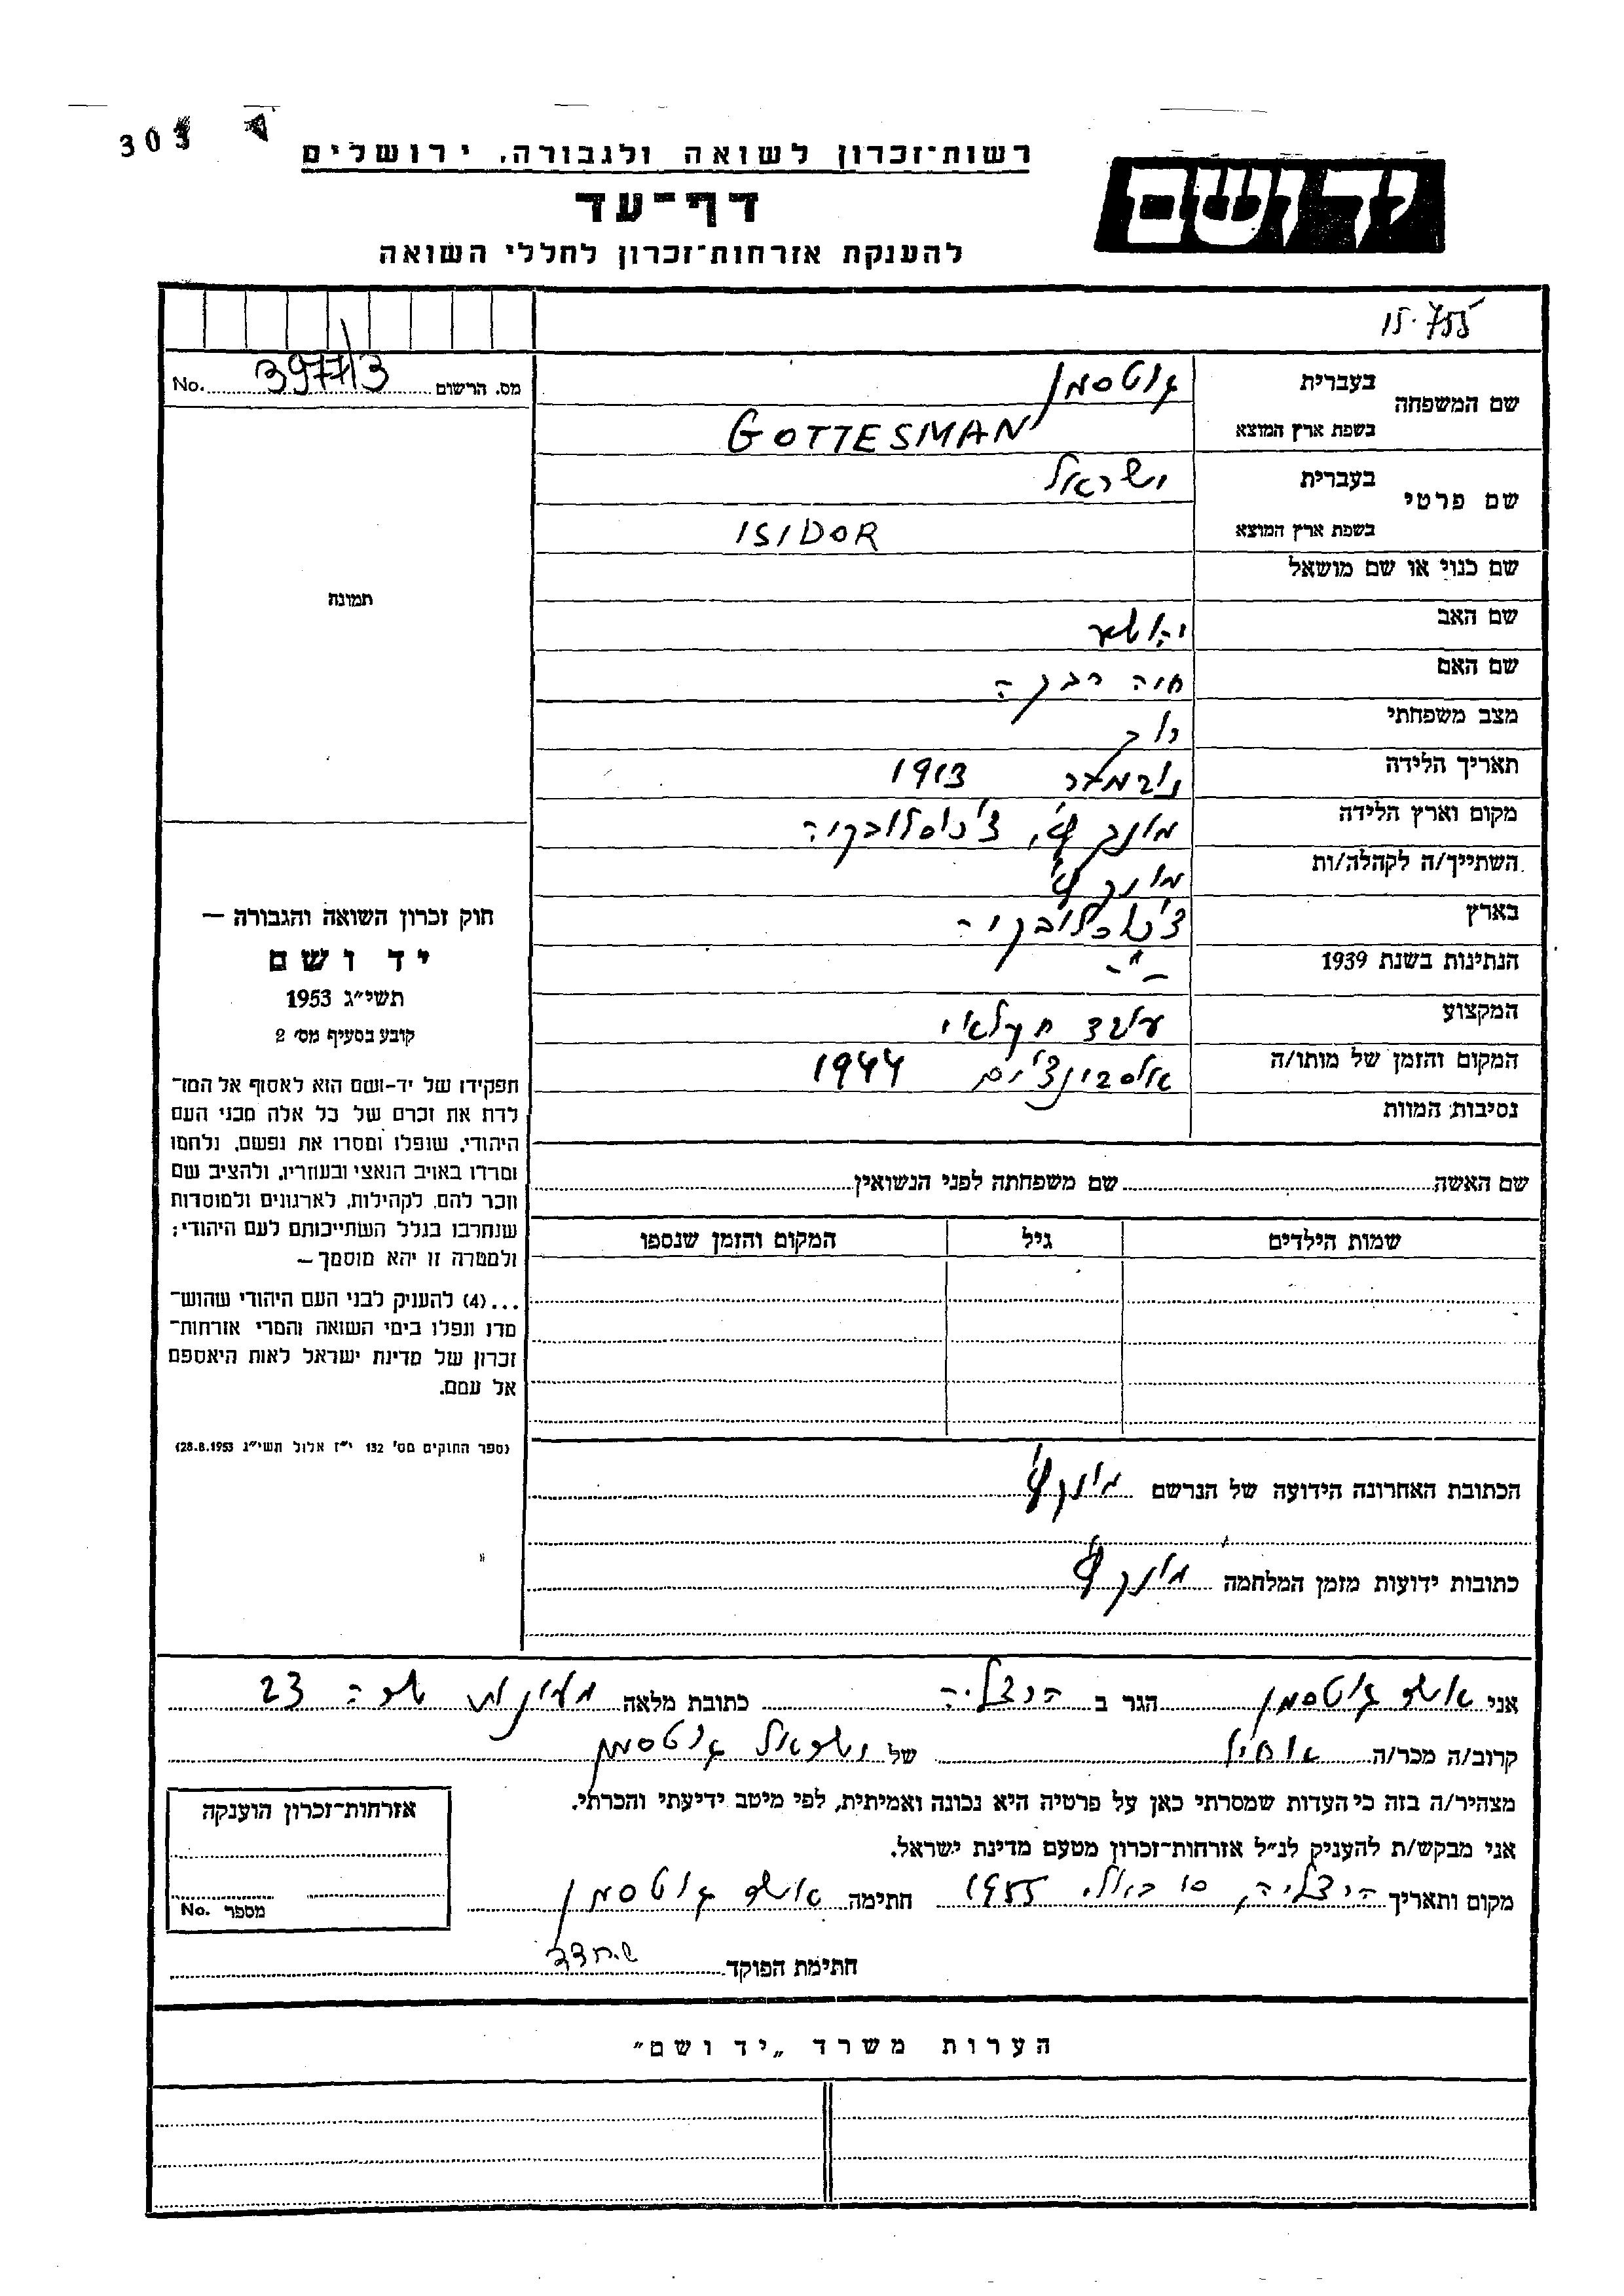 303
רשות־זכרון לשואה ולגבורה, ירושלים
דף־עד
להענקת אזרחות־זכרון לחללי השואה
יד ושם
15.755
מס. הרשום 397713 No.
שם המשפחה בעברית גוטסמן
בשפת ארץ המוצא GOTTESMAN
שם פרטי בעברית ישראל
בשפת ארץ המוצא ISIDOR
שם כנוי או שם מושאל
שם האב
שם האם חיה רבקה
מצב משפחתי רוק
תאריך הלידה נובמבר 1913
מקום וארץ הלידה מונקץ', צ'כוסלובקיה
השתייך/ה לקהלה/ות מונקץ'
בארץ צ'כוסלובקיה
הנתינות בשנת 1939 -"-
המקצוע עובד חקלאי
המקום והזמן של מותו/ה אוסבינצ'ים 1944
נסיבות המוות
תמונה
חוק זכרון השואה והגבורה —
יד ושם
תשי״ג 1953
קובע בסעיף מס׳ 2
תפקידו של יד-ושם הוא לאסוף אל המו־
לדת את זכרם של כל אלה מבני העם
היהודי, שנפלו ומסרו את נפשם, נלחמו
ומרדו באויב הנאצי ובעוזריו, ולהציב שם
וזכר להם, לקהילות, לארגונים ולמוסדות
שנחרבו בגלל השתייכותם לעם היהודי;
ולמטרה זו יהא מוסמך —
...(4) להעניק לבני העם היהודי שהוש־
מדו ונפלו בימי השואה והמרי אזרחות־
זכרון של מדינת ישראל לאות היאספם
אל עמם.
(ספר החוקים מס׳ 132 י״ז אלול תשי״ג 28.8.1953)
שם האשה שם משפחתה לפני הנשואין
שמות הילדים גיל המקום והזמן שנספו
הכתובת האחרונה הידועה של הנרשם מונקץ'
כתובות ידועות מזמן המלחמה מונקץ'
אני אשר גוטסמן הגר ב הרצליה כתובת מלאה מעונות שרה 23
קרוב/ה מכר/ה אחיו של ישראל גוטסמן
מצהיר/ה בזה כי העדות שמסרתי כאן על פרטיה היא נכונה ואמיתית, לפי מיטב ידיעתי והכרתי.
אני מבקש/ת להעניק לנ״ל אזרחות־זכרון מטעם מדינת ישראל.
מקום ותאריך הרצליה, 10 ביולי 1955 חתימה אשר גוטסמן
חתימת הפוקד
אזרחות־זכרון הוענקה
מספר No.
הערות משרד „יד ושם״